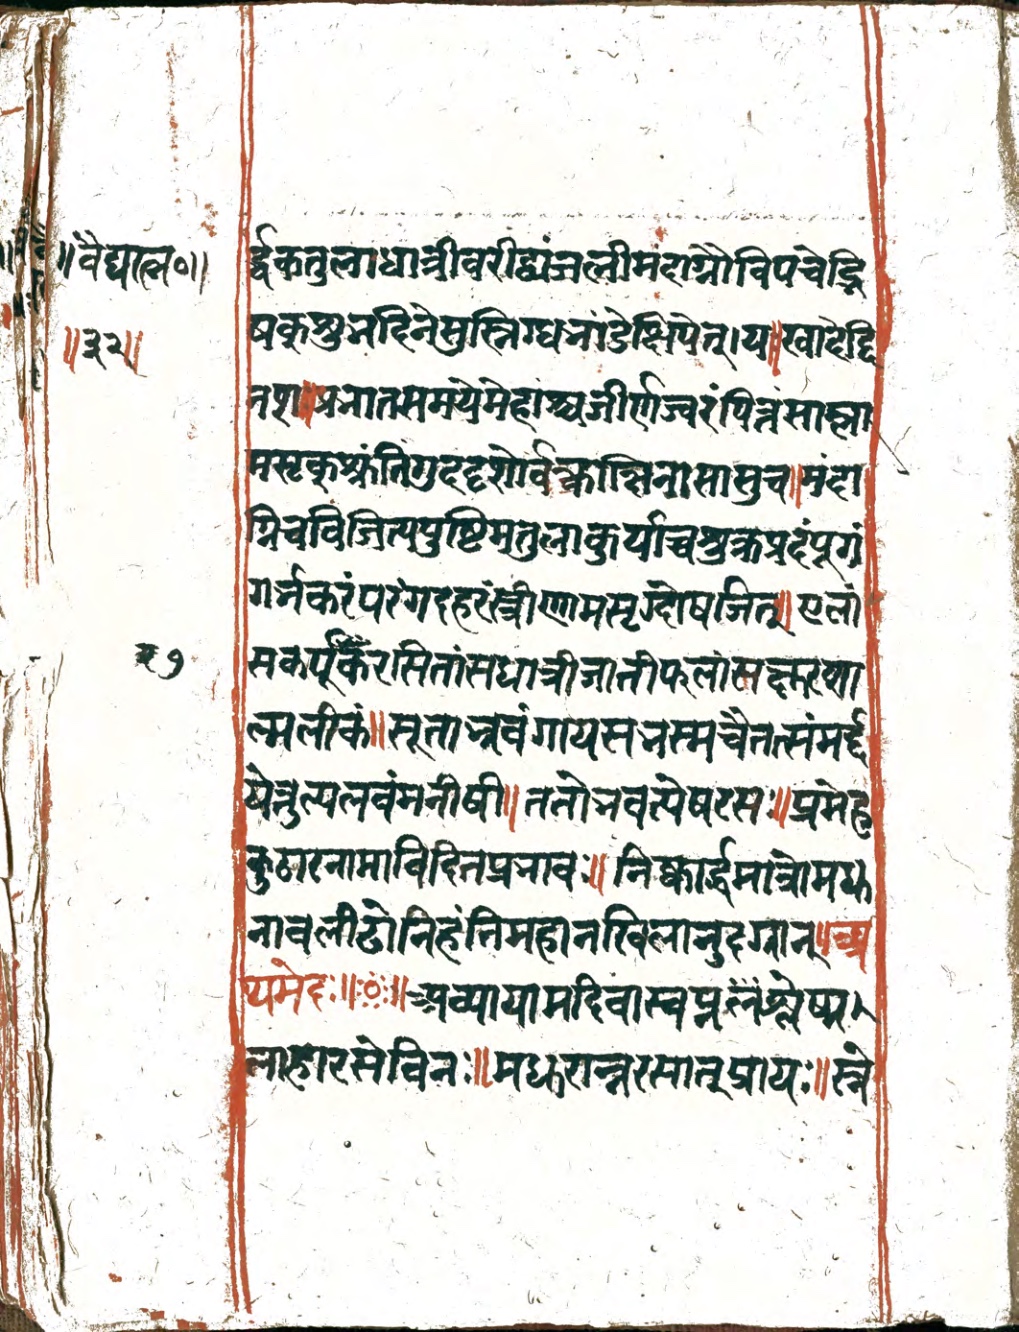 ॥वैद्यात्ल०॥
॥३२॥
२७
र्द्धकतुलाधात्रीवरीद्व्यंजलीमंदाग्नौविपचेद्भि
षक्शुनदिनेसुस्निग्धनांडेक्षिपेत्।य॥खादेद्दि
नश॥प्रनातसमयेमेहांश्चजीर्णज्वरंपित्तंसाम्ला
मसृक्श्रुंतिगुददृशोर्वक्त्राक्षिनासासुच॥मंदा
ग्निचविजित्यपुष्टिमतुलाकुर्याच्चशुक्रप्रदंपूगं
गर्नकरंपरंगदहरंस्त्रीणामसृग्दोषजित्॥एलां
सकर्पूरसितांसधात्रीजातीफलंसदारशा
ल्मलीकं॥सूतान्नवंगायसनस्मचैतत्संमर्द्द
येत्तुल्यलवंमनीषी॥ततोनवत्येषरसः॥प्रमेह
कुठारनामाविदितप्रनावः॥निष्कार्द्धमात्रोमधु
नावलीढोनिहंतिमहानखिलानुदग्रान्॥अ
थमेदः॥ः०ः॥अव्यायामदिवास्वप्नश्लेष्म
लाहारसेविनः॥मधुरान्नरसात्प्रायः॥स्ने